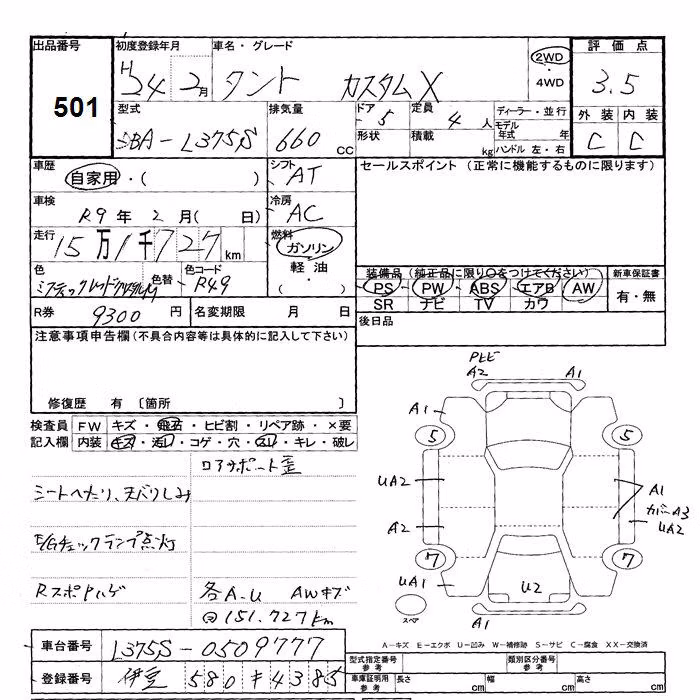 出品番号 初度登録年月 車名・グレード 2WD・4WD 評価点
501 H24 2月 タント カスタムX 3.5
型式 排気量 ドア 5 定員 4人 ディーラー・並行 外装 内装
SBA-L375S 660cc 形状 積載 kg モデル年式 年 C C
ハンドル 左・右
車歴 自家用・( ) シフト AT セールスポイント (正常に機能するものに限ります)
車検 R9年 2月( 日) 冷房 AC
走行 15万1千727km 燃料 ガソリン 軽油・( )
色 色替 色コード R49 装備品 (純正品に限り○をつけてください) 新車保証書
PS・PW・ABS・エアB・AW 有・無
SR ナビ TV カワ
R券 9300円 名変期限 月 日 後日品
注意事項申告欄(不具合内容等は具体的に記入して下さい)
修復歴 有 〔箇所 〕
検査員 FW キズ・飛石・ヒビ割・リペア跡・×要
記入欄 内装 キズ・汚レ・コゲ・穴・スレ・キレ・破レ
コアサポート歪
シートへたり、天バリしみ
E/Gチェックランプ点灯
Rスポハゲ 各A.U AWキズ
@151.727km
A2 A1
A1
5 5
UA2 A1
カバーA3
A2 UA2
7 7
UA1 U2
スペア A1
A-キズ E-エクボ U-凹み W-補修跡 S-サビ C-腐食 XX-交換済
車台番号 L375S-0509777 型式指定番号 参考 類別区分番号 参考
登録番号 伊豆 580 キ4385 車庫証明用 参考 長さ cm 幅 cm 高さ cm